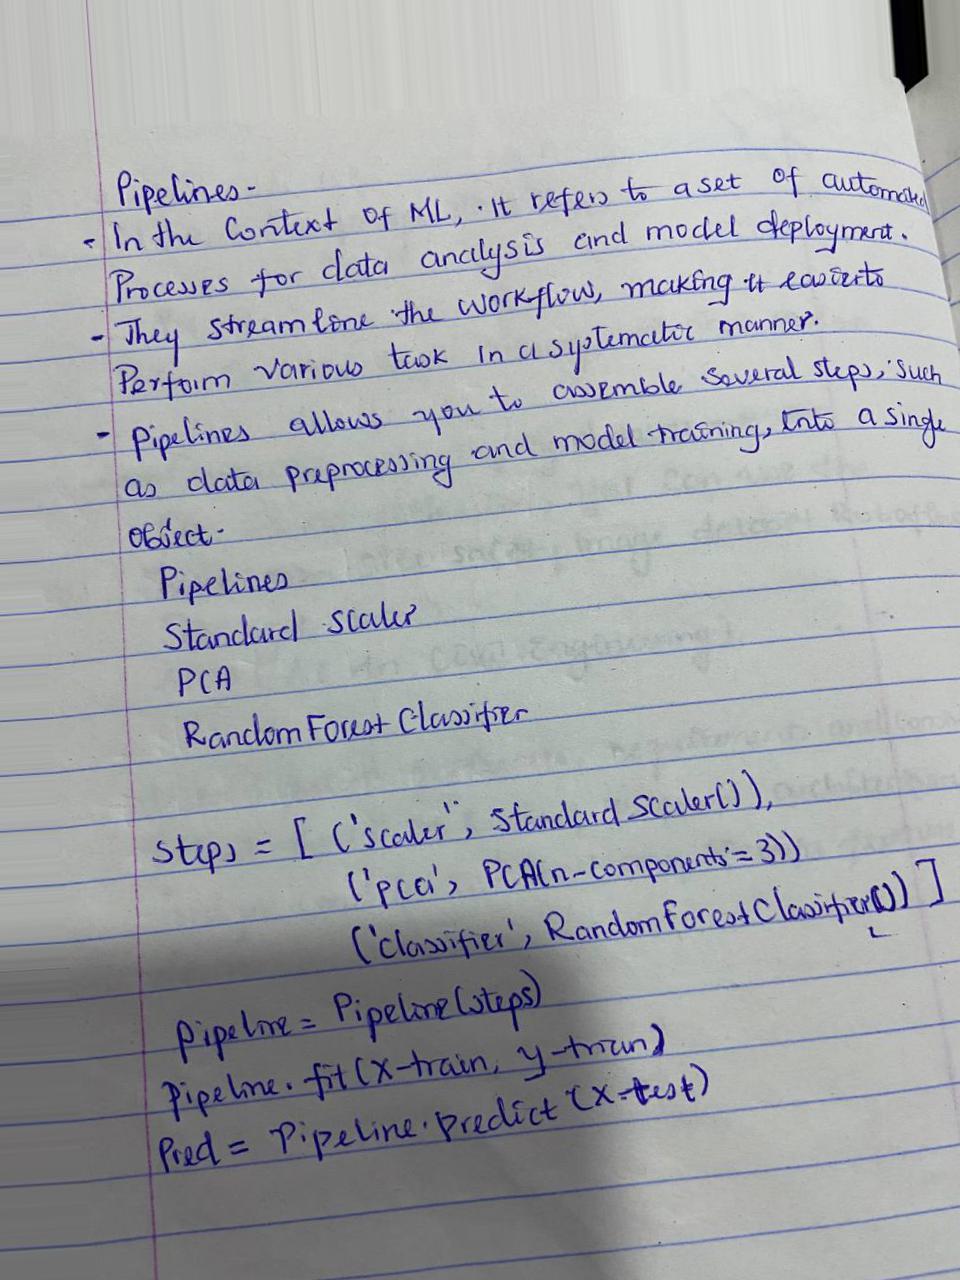 Pipelines-
- In the Context of ML, It refers to a set of automated
Processes for data analysis and model deployment.
- They streamline the workflow, making it easier to
Perform various task in a systematic manner.
- Pipelines allows you to assemble several steps, such
as data preprocessing and model training, into a single
object.
Pipelines
Standard Scaler
PCA
RandomForest Classifier
Steps = [ ('scaler", Standard Scaler()),
('pca', PCA(n-components=3))
('classifier', RandomForestClassifier()) ]
Pipeline = Pipeline(steps)
Pipeline.fit(x-train, y-train)
Pred = Pipeline.predict(x-test)